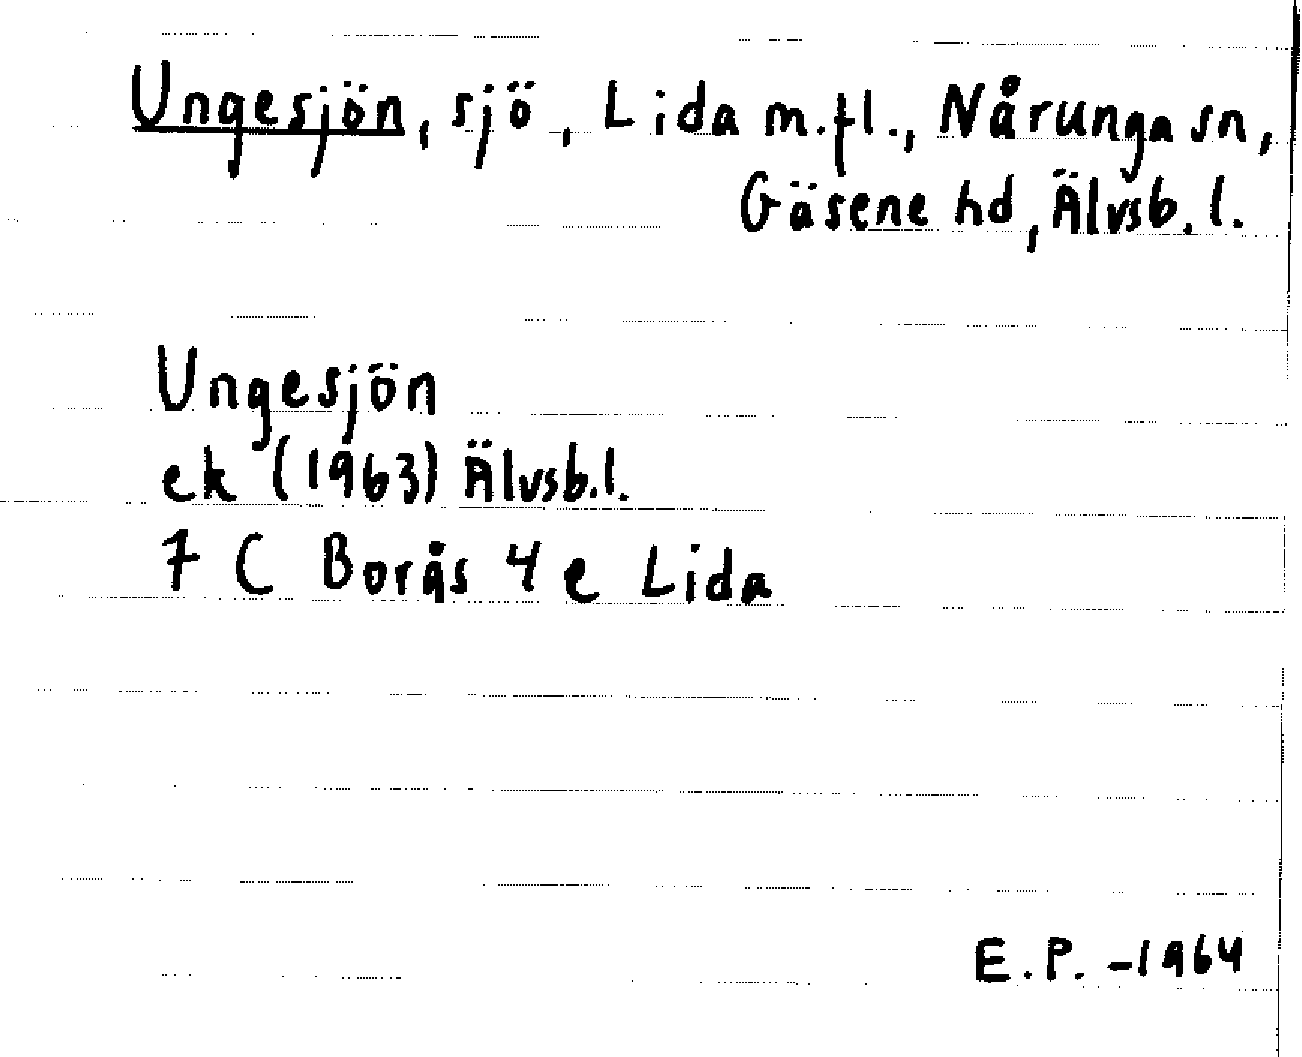 Ungesjön, sjö, Lida m.fl., Nårunga sn,
Gäsene hd, Älvsb. l.
Ungesjön
ek (1963) Älvsb.l.
7 C Borås 4 e Lida
E.P. -1964